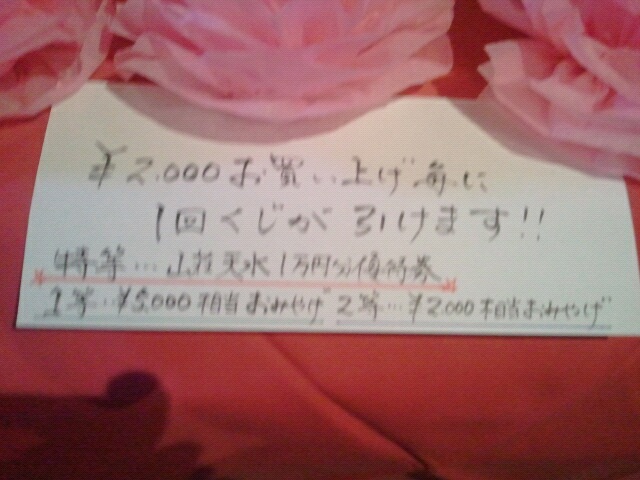 ¥2.000お買い上げ毎に
1回くじが引けます!!
特等…山荘天水1万円分優待券
1等…¥5,000相当おみやげ 2等…¥2.000相当おみやげ